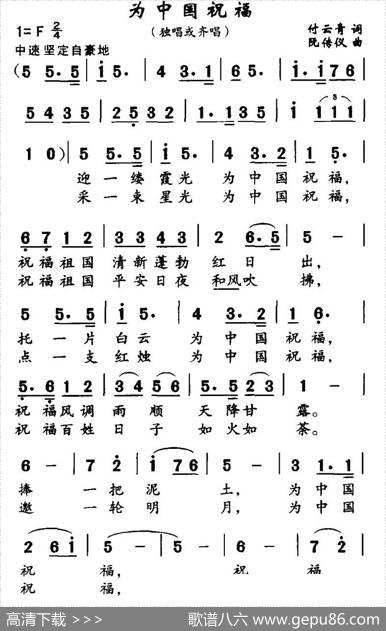 为中国祝福
(独唱或齐唱)
1=F 2/4
付云青 词
中速 坚定自豪地
阮传仪 曲
(5 5·5 | i 5· | 4 3·2 | 6 5· | i·i 7 6 |
5·5 3 5 | 2 5 3 2 | 1 1·1 | 1 1 1 1 |
1 0) | 5 5·5 | i 5· | 4 3·2 | 1 5· |
迎 一 缕 霞 光 为 中 国 祝 福,
采 一 束 星 光 为 中 国 祝 福,
6 7 1 2 | 3 3 4 3 | 2 6·5 | 5 – |
祝福祖国 清新蓬勃 红 日 出,
祝福祖国 平安日夜 和风吹 拂,
5 5·5 | i 5· | 4 3·2 | 1 6· |
托 一 片 白 云 为 中 国 祝 福,
点 一 支 红 烛 为 中 国 祝 福,
5·6 1 2 | 3 4 5 6 | 5·5 2 3 | 1 – |
祝 福风调 雨 顺 天 降甘 露。
祝 福百姓 日 子 如 火如 荼。
6 – | 7 2 | i 7 6 | 5 – | 3 1·1 |
捧 一 把 泥 土, 为 中国
邀 一 轮 明 月, 为 中国
2 6 i | 5 – | 5 – | 6 – | 7 2 |
祝 福, 祝 福
祝 福,
高清下载 >>>
歌谱八六 www.gepu86.com